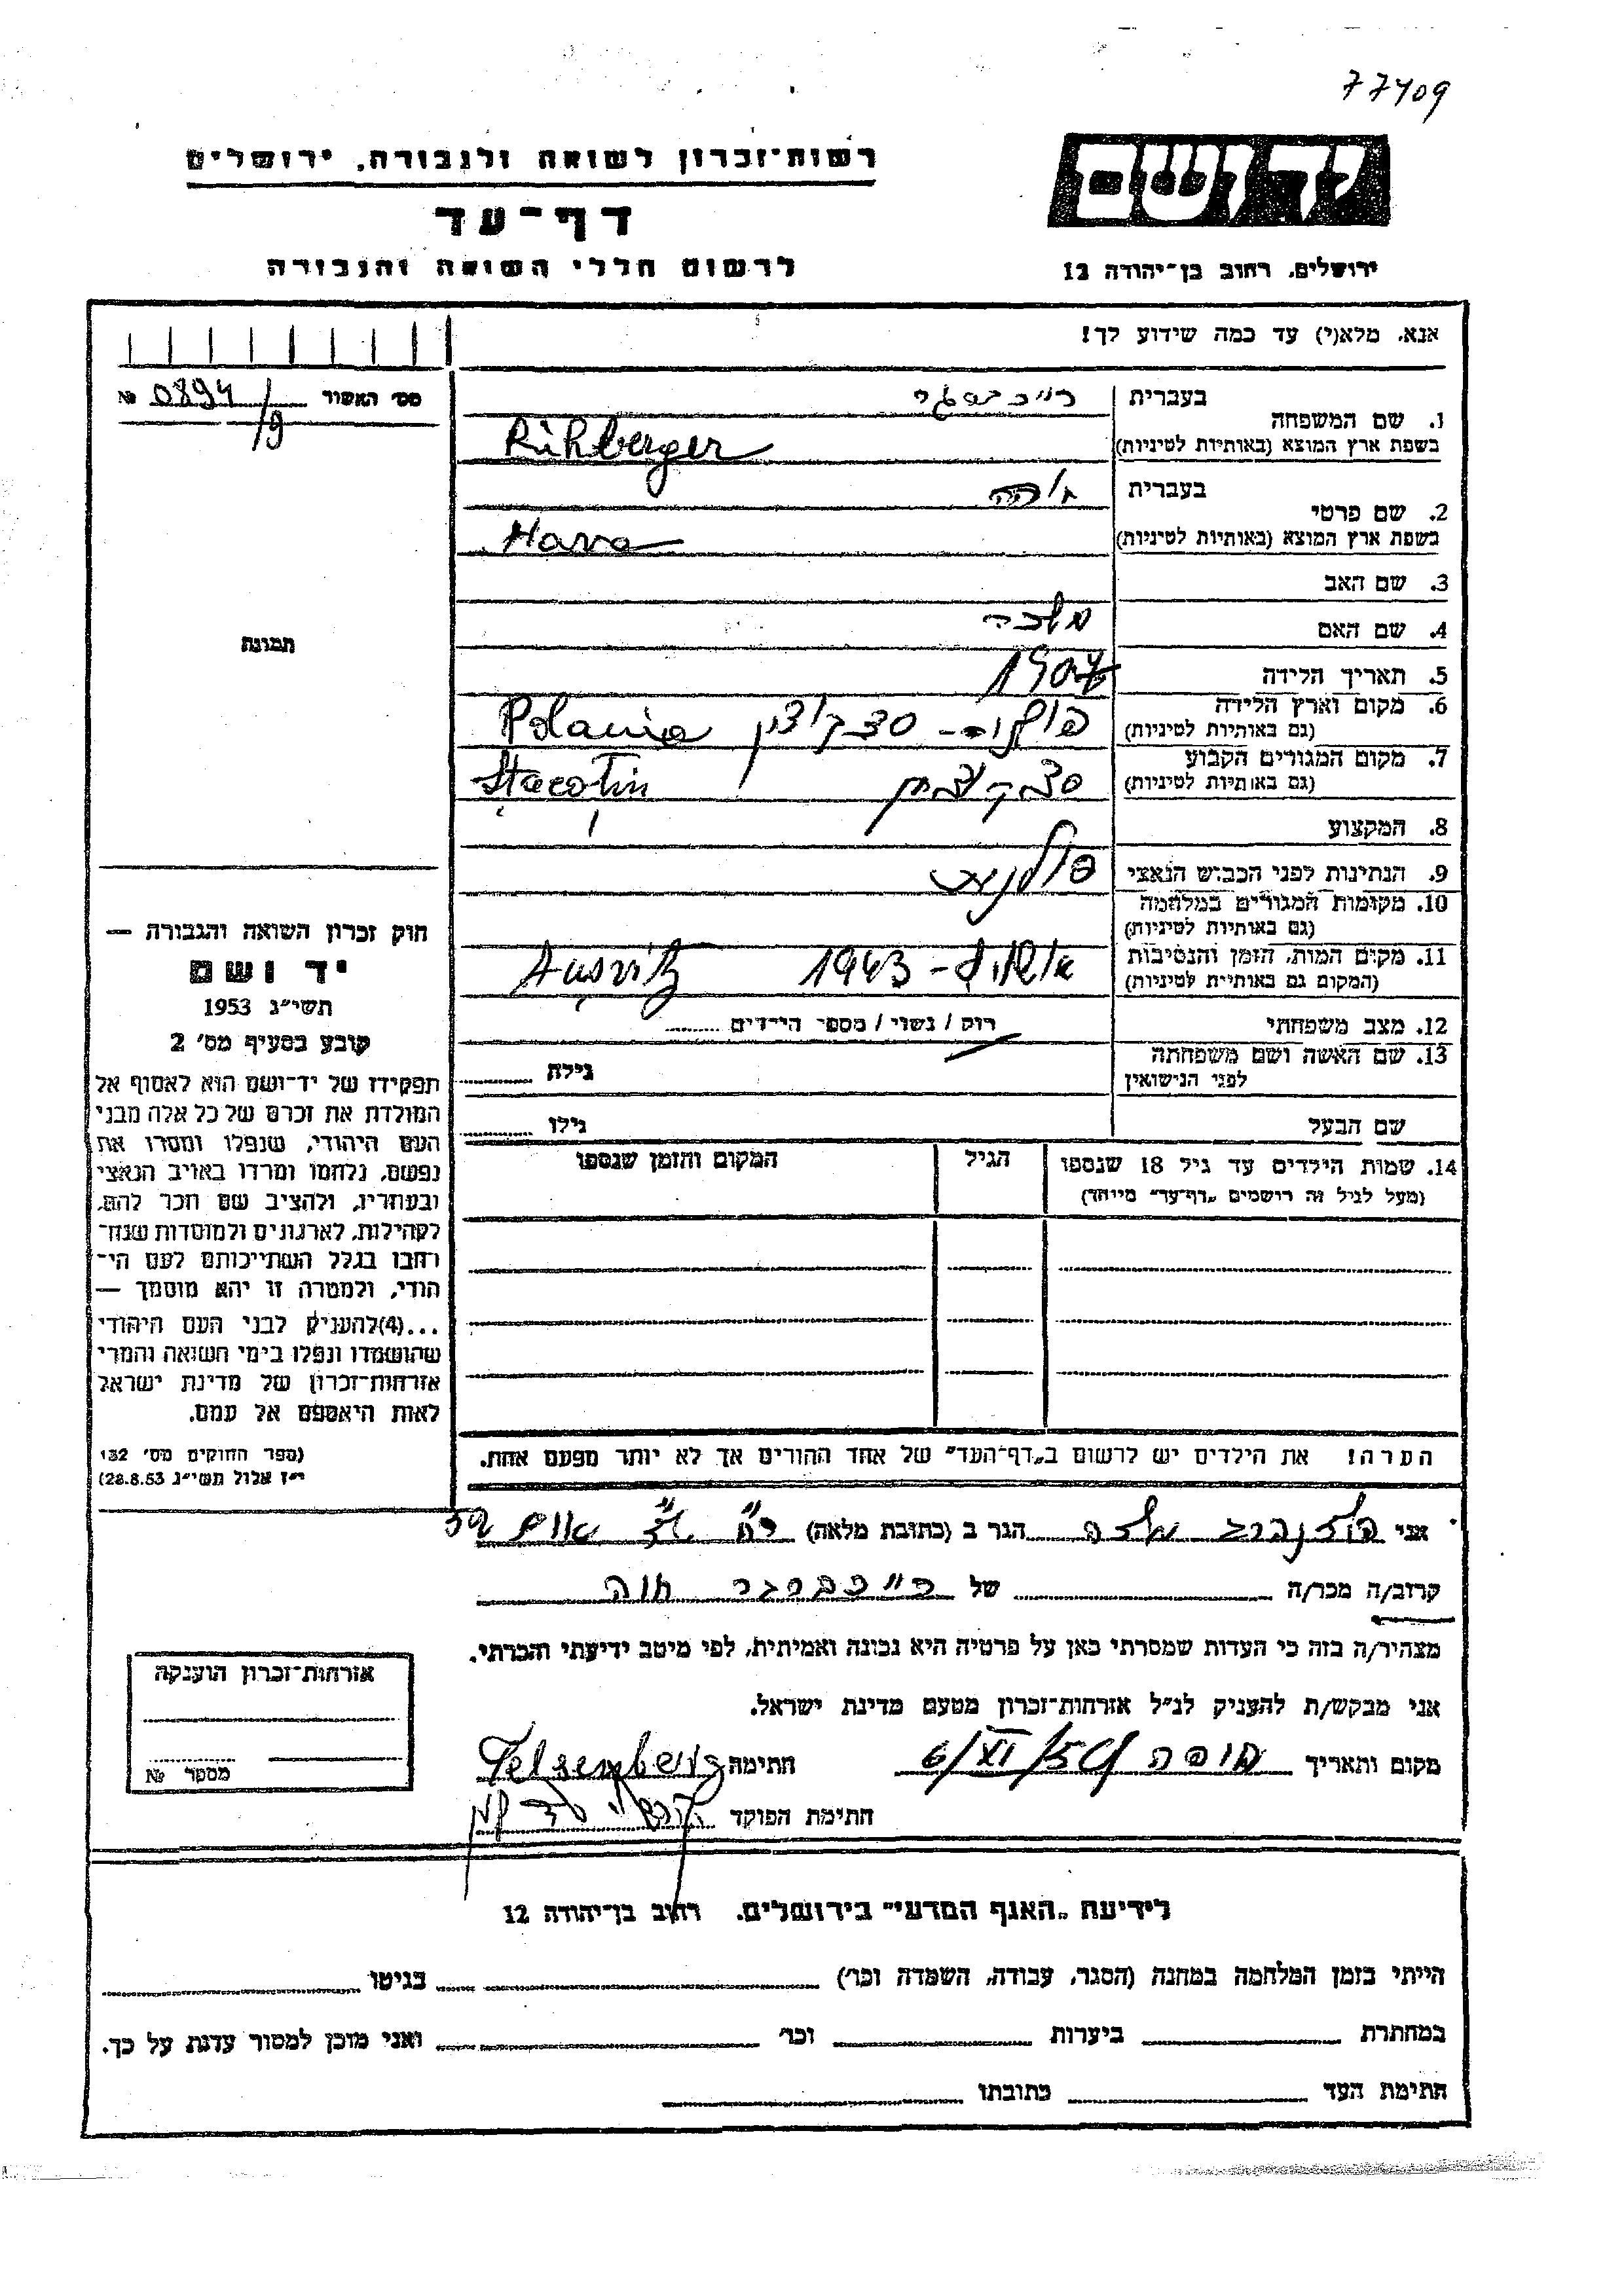 77409
יד ושם
ירושלים, רחוב בן־יהודה 12
רשות־זכרון לשואה ולגבורה, ירושלים
דף־עד
לרשום חללי השואה והגבורה
אנא, מלא(י) עד כמה שידוע לך!
1. שם המשפחה
בעברית
בשפת ארץ המוצא (באותיות לטיניות) Rihberger
2. שם פרטי
בעברית חוה
בשפת ארץ המוצא (באותיות לטיניות) Hava
3. שם האב
4. שם האם מלכה
5. תאריך הלידה
6. מקום וארץ הלידה
(גם באותיות לטיניות) פולניה - Polania
7. מקום המגורים הקבוע
(גם באותיות לטיניות)
8. המקצוע
9. הנתינות לפני הכבוש הנאצי פולנית
10. מקומות המגורים במלחמה
(גם באותיות לטיניות)
11. מקום המות, הזמן והנסיבות
(המקום גם באותיות לטיניות) אושויץ - 1943 Ausvitz
12. מצב משפחתי רווק / נשוי / מספר הילדים
13. שם האשה ושם משפחתה
לפני הנישואין גילה
שם הבעל גילו
14. שמות הילדים עד גיל 18 שנספו
(מעל לגיל זה רושמים „דף־עד” מיוחד)
הגיל
המקום והזמן שנספו
הערה! את הילדים יש לרשום ב„דף־העד” של אחד ההורים אך לא יותר מפעם אחת.
מס׳ האשור 0894/9 №
תמונת
חוק זכרון השואה והגבורה —
יד ושם
תשי״ג 1953
קובע בסעיף מס׳ 2
תפקידו של יד־ושם הוא לאסוף אל
המולדת את זכרם של כל אלה מבני
העם היהודי, שנפלו ומסרו את
נפשם, נלחמו ומרדו באויב הנאצי
ובעוזריו, ולהציב שם וזכר להם,
לקהילות, לארגונים ולמוסדות שנח־
רבו בגלל השתייכותם לעם הי־
הודי, ולמטרה זו יהא מוסמך —
...(4)להעניק לבני העם היהודי
שהושמדו ונפלו בימי השואה והמרי
אזרחות־זכרון של מדינת ישראל
לאות היאספם אל עמם.
(ספר החוקים מס׳ 132
י״ז אלול תשי״ג 28.8.53)
אני הגר ב (כתובת מלאה)
קרוב/ה מכר/ה של רייכברגר חוה
מצהיר/ה בזה כי העדות שמסרתי כאן על פרטיה היא נכונה ואמיתית, לפי מיטב ידיעתי והכרתי.
אני מבקש/ת להעניק לנ״ל אזרחות־זכרון מטעם מדינת ישראל.
מקום ותאריך חיפה חתימה
חתימת הפוקד
אזרחות־זכרון הוענקה
מספר №
לידיעת „האגף המדעי” בירושלים, רחוב בן־יהודה 12
הייתי בזמן המלחמה במחנה (הסגר, עבודה, השמדה וכו׳) בגיטו
במחתרת ביערות וכו׳ ואני מוכן למסור עדות על כך.
חתימת העד כתובתו